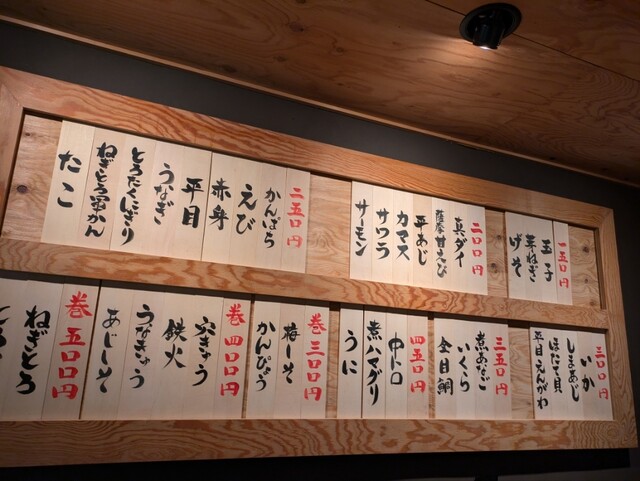 一五〇円
玉子
芽ねぎ
げそ
二〇〇円
真ダイ
薩摩甘えび
平あじ
カマス
サワラ
サーモン
二五〇円
かんぱち
えび
赤身
平目
うなぎ
とろたくにぎり
ねぎとろ軍かん
たこ
三〇〇円
いか
しまあじ
ほたて貝
平目えんがわ
三五〇円
煮あなご
いくら
金目鯛
四五〇円
中トロ
煮ハマグリ
うに
巻三〇〇円
梅しそ
かんぴょう
巻四〇〇円
穴きゅう
鉄火
うなきゅう
あじしそ
巻五〇〇円
ねぎとろ